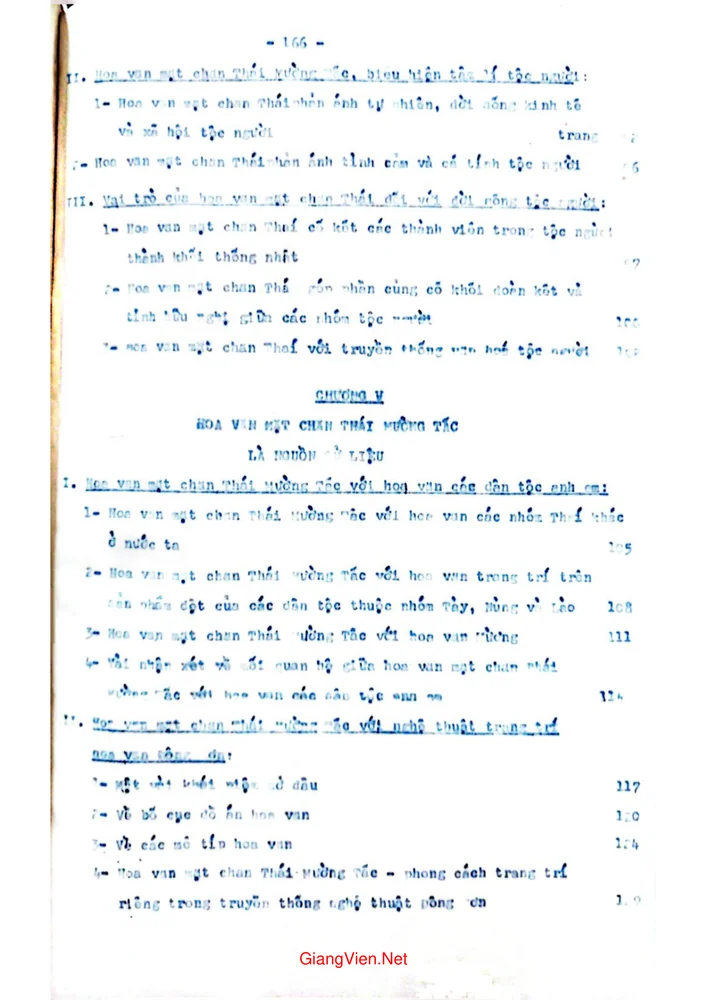 - 166 -
II. Hoa văn mặt chăn Thái Mường Tấc, biểu hiện tâm lí tộc người:
1- Hoa văn mặt chăn Thái phản ánh tự nhiên, đời sống kinh tế
và xã hội tộc người trang
2- Hoa văn mặt chăn Thái phản ánh tình cảm và cá tính tộc người
III. Vai trò của hoa văn mặt chăn Thái đối với đời sống tộc người:
1- Hoa văn mặt chăn Thái cố kết các thành viên trong tộc người
thành khối thống nhất
2- Hoa văn mặt chăn Thái góp phần củng cố khối đoàn kết và
tính hữu nghị giữa các nhóm tộc người
3- Hoa văn mặt chăn Thái với truyền thống văn hoá tộc người
CHƯƠNG V
HOA VĂN MẶT CHĂN THÁI MƯỜNG TẤC
LÀ NGUỒN SỬ LIỆU
I. Hoa văn mặt chăn Thái Mường Tấc với hoa văn các dân tộc anh em:
1- Hoa văn mặt chăn Thái Mường Tấc với hoa văn các nhóm Thái khác
ở nước ta 105
2- Hoa văn mặt chăn Thái Mường Tấc với hoa văn trang trí trên
sản phẩm dệt của các dân tộc thuộc nhóm Tày, Nùng và Lào 108
3- Hoa văn mặt chăn Thái Mường Tấc với hoa văn Mường 111
4- Vài nhận xét về mối quan hệ giữa hoa văn mặt chăn Thái
Mường Tấc với hoa văn các dân tộc anh em 114
II. Hoa văn mặt chăn Thái Mường Tấc với nghệ thuật trang trí
hoa văn Đông Sơn:
1- Một vài khái niệm mở đầu 117
2- Về bố cục đồ án hoa văn 120
3- Về các mô típ hoa văn 124
4- Hoa văn mặt chăn Thái Mường Tấc - phong cách trang trí
riêng trong truyền thống nghệ thuật Đông Sơn
GiangVien.Net